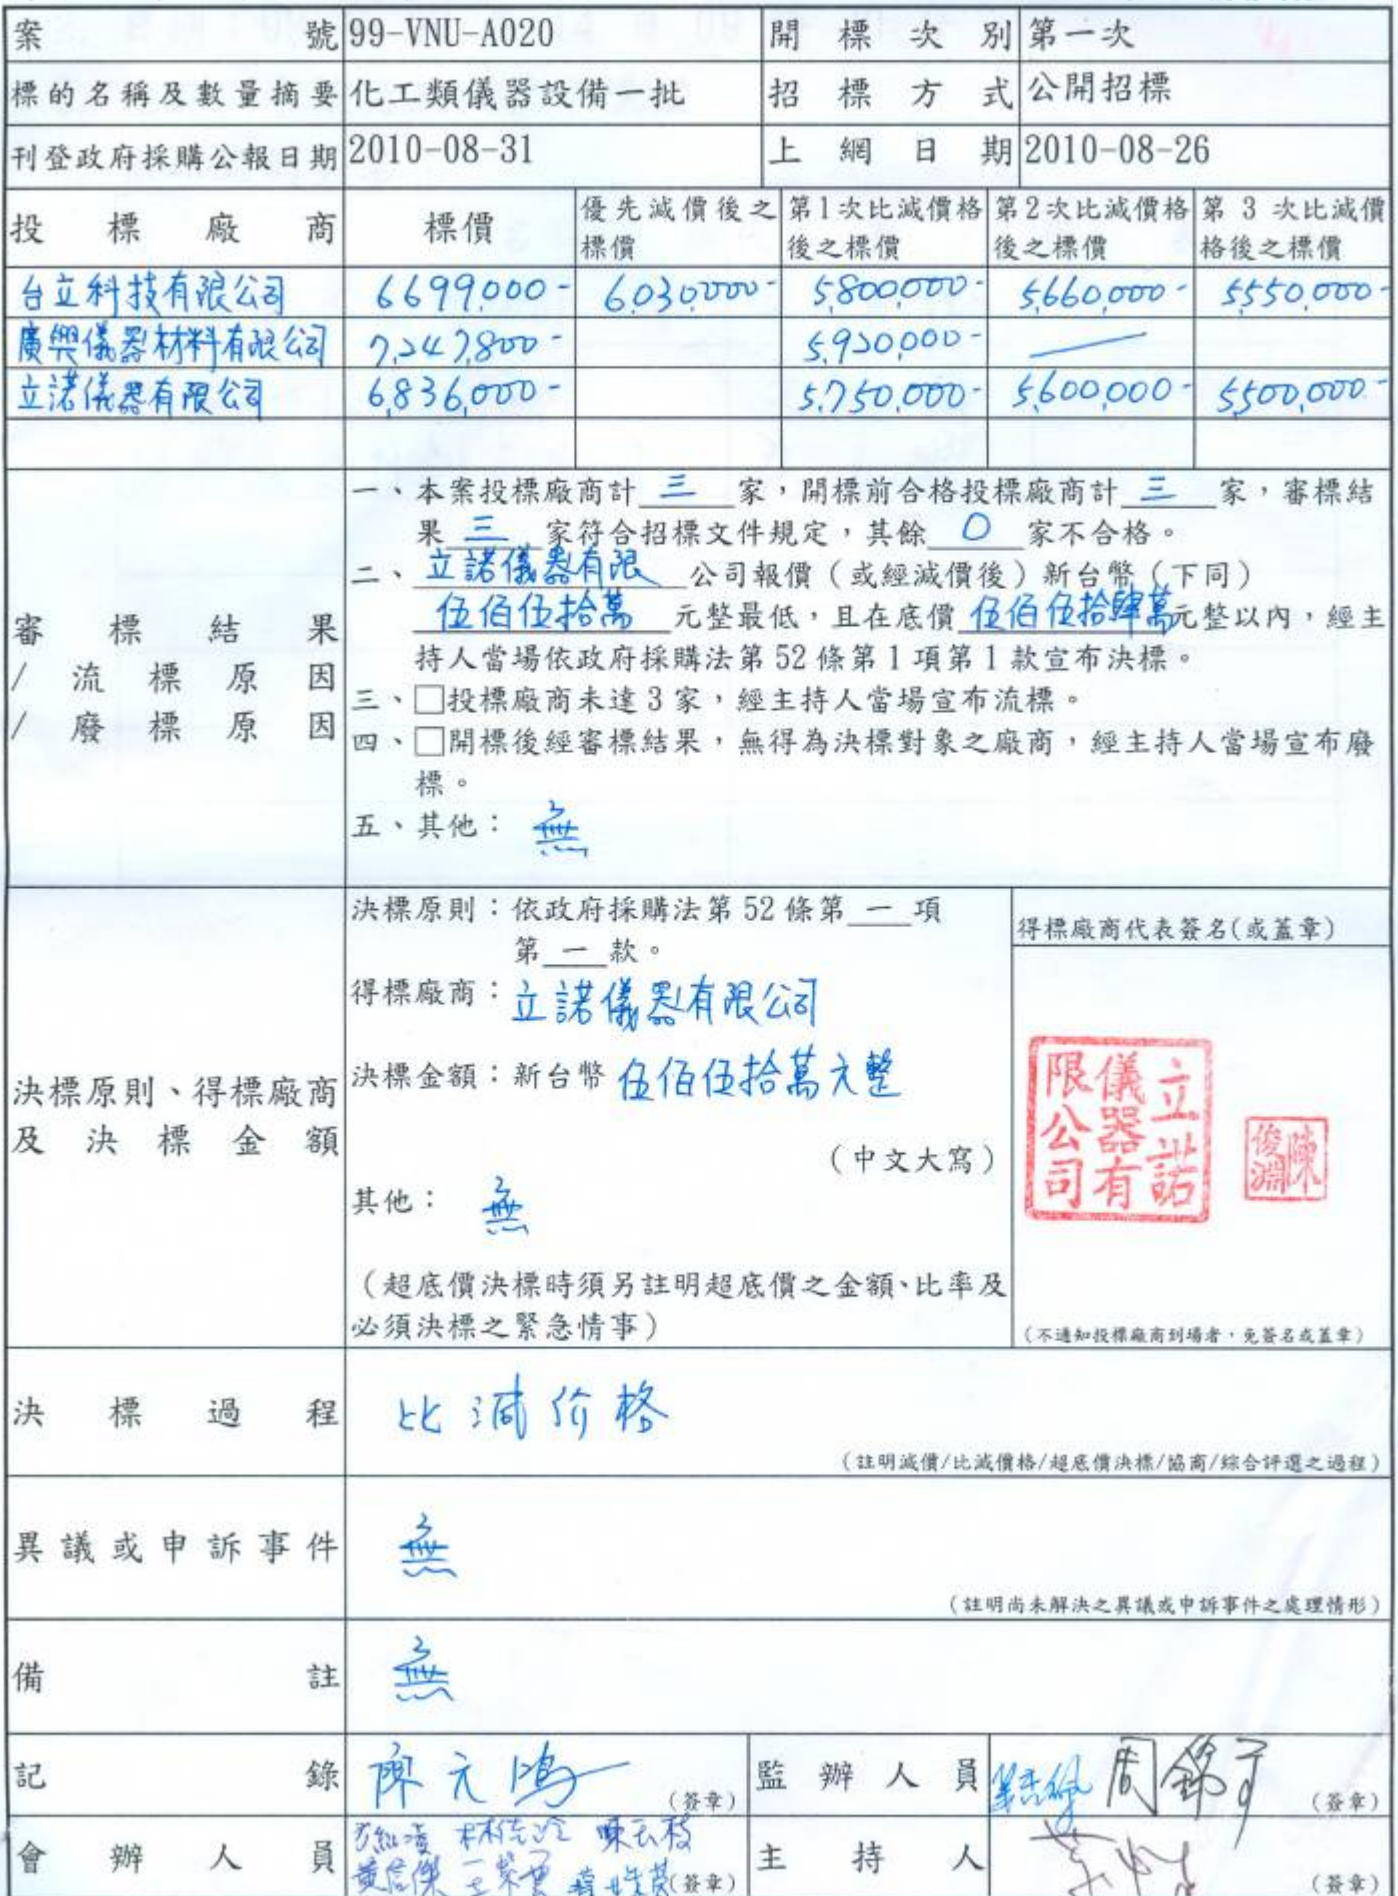 案號 99-VNU-A020 開標次別 第一次
標的名稱及數量摘要 化工類儀器設備一批 招標方式 公開招標
刊登政府採購公報日期 2010-08-31 上網日期 2010-08-26
投標廠商 標價 優先減價後之標價 第1次比減價格後之標價 第2次比減價格後之標價 第3次比減價格後之標價
台立科技有限公司 6699,000- 6,030,000- 5,800,000- 5,660,000- 5,550,000-
廣興儀器材料有限公司 7,247,800- 5,920,000-
立諾儀器有限公司 6,836,000- 5,750,000- 5,600,000- 5,500,000-
審標結果
/流標原因
/廢標原因
一、本案投標廠商計 三 家,開標前合格投標廠商計 三 家,審標結
果 三 家符合招標文件規定,其餘 0 家不合格。
二、立諾儀器有限 公司報價(或經減價後)新台幣(下同)
伍佰伍拾萬 元整最低,且在底價 伍佰伍拾肆萬元整以內,經主
持人當場依政府採購法第52條第1項第1款宣布決標。
三、□投標廠商未達3家,經主持人當場宣布流標。
四、□開標後經審標結果,無得為決標對象之廠商,經主持人當場宣布廢
標。
五、其他: 無
決標原則、得標廠商
及決標金額
決標原則:依政府採購法第52條第 一 項
第 一 款。
得標廠商:立諾儀器有限公司
決標金額:新台幣 伍佰伍拾萬元整
(中文大寫)
其他: 無
(超底價決標時須另註明超底價之金額、比率及
必須決標之緊急情事)
得標廠商代表簽名(或蓋章)
立諾儀器有限公司
陳俊淵
(不通知投標廠商到場者,免簽名或蓋章)
決標過程 比減价格
(註明減價/比減價格/超底價決標/協商/綜合評選之過程)
異議或申訴事件 無
(註明尚未解決之異議或申訴事件之處理情形)
備註 無
記錄 (簽章) 監辦人員 (簽章)
會辦人員 黃信傑 (簽章) 主持人 (簽章)